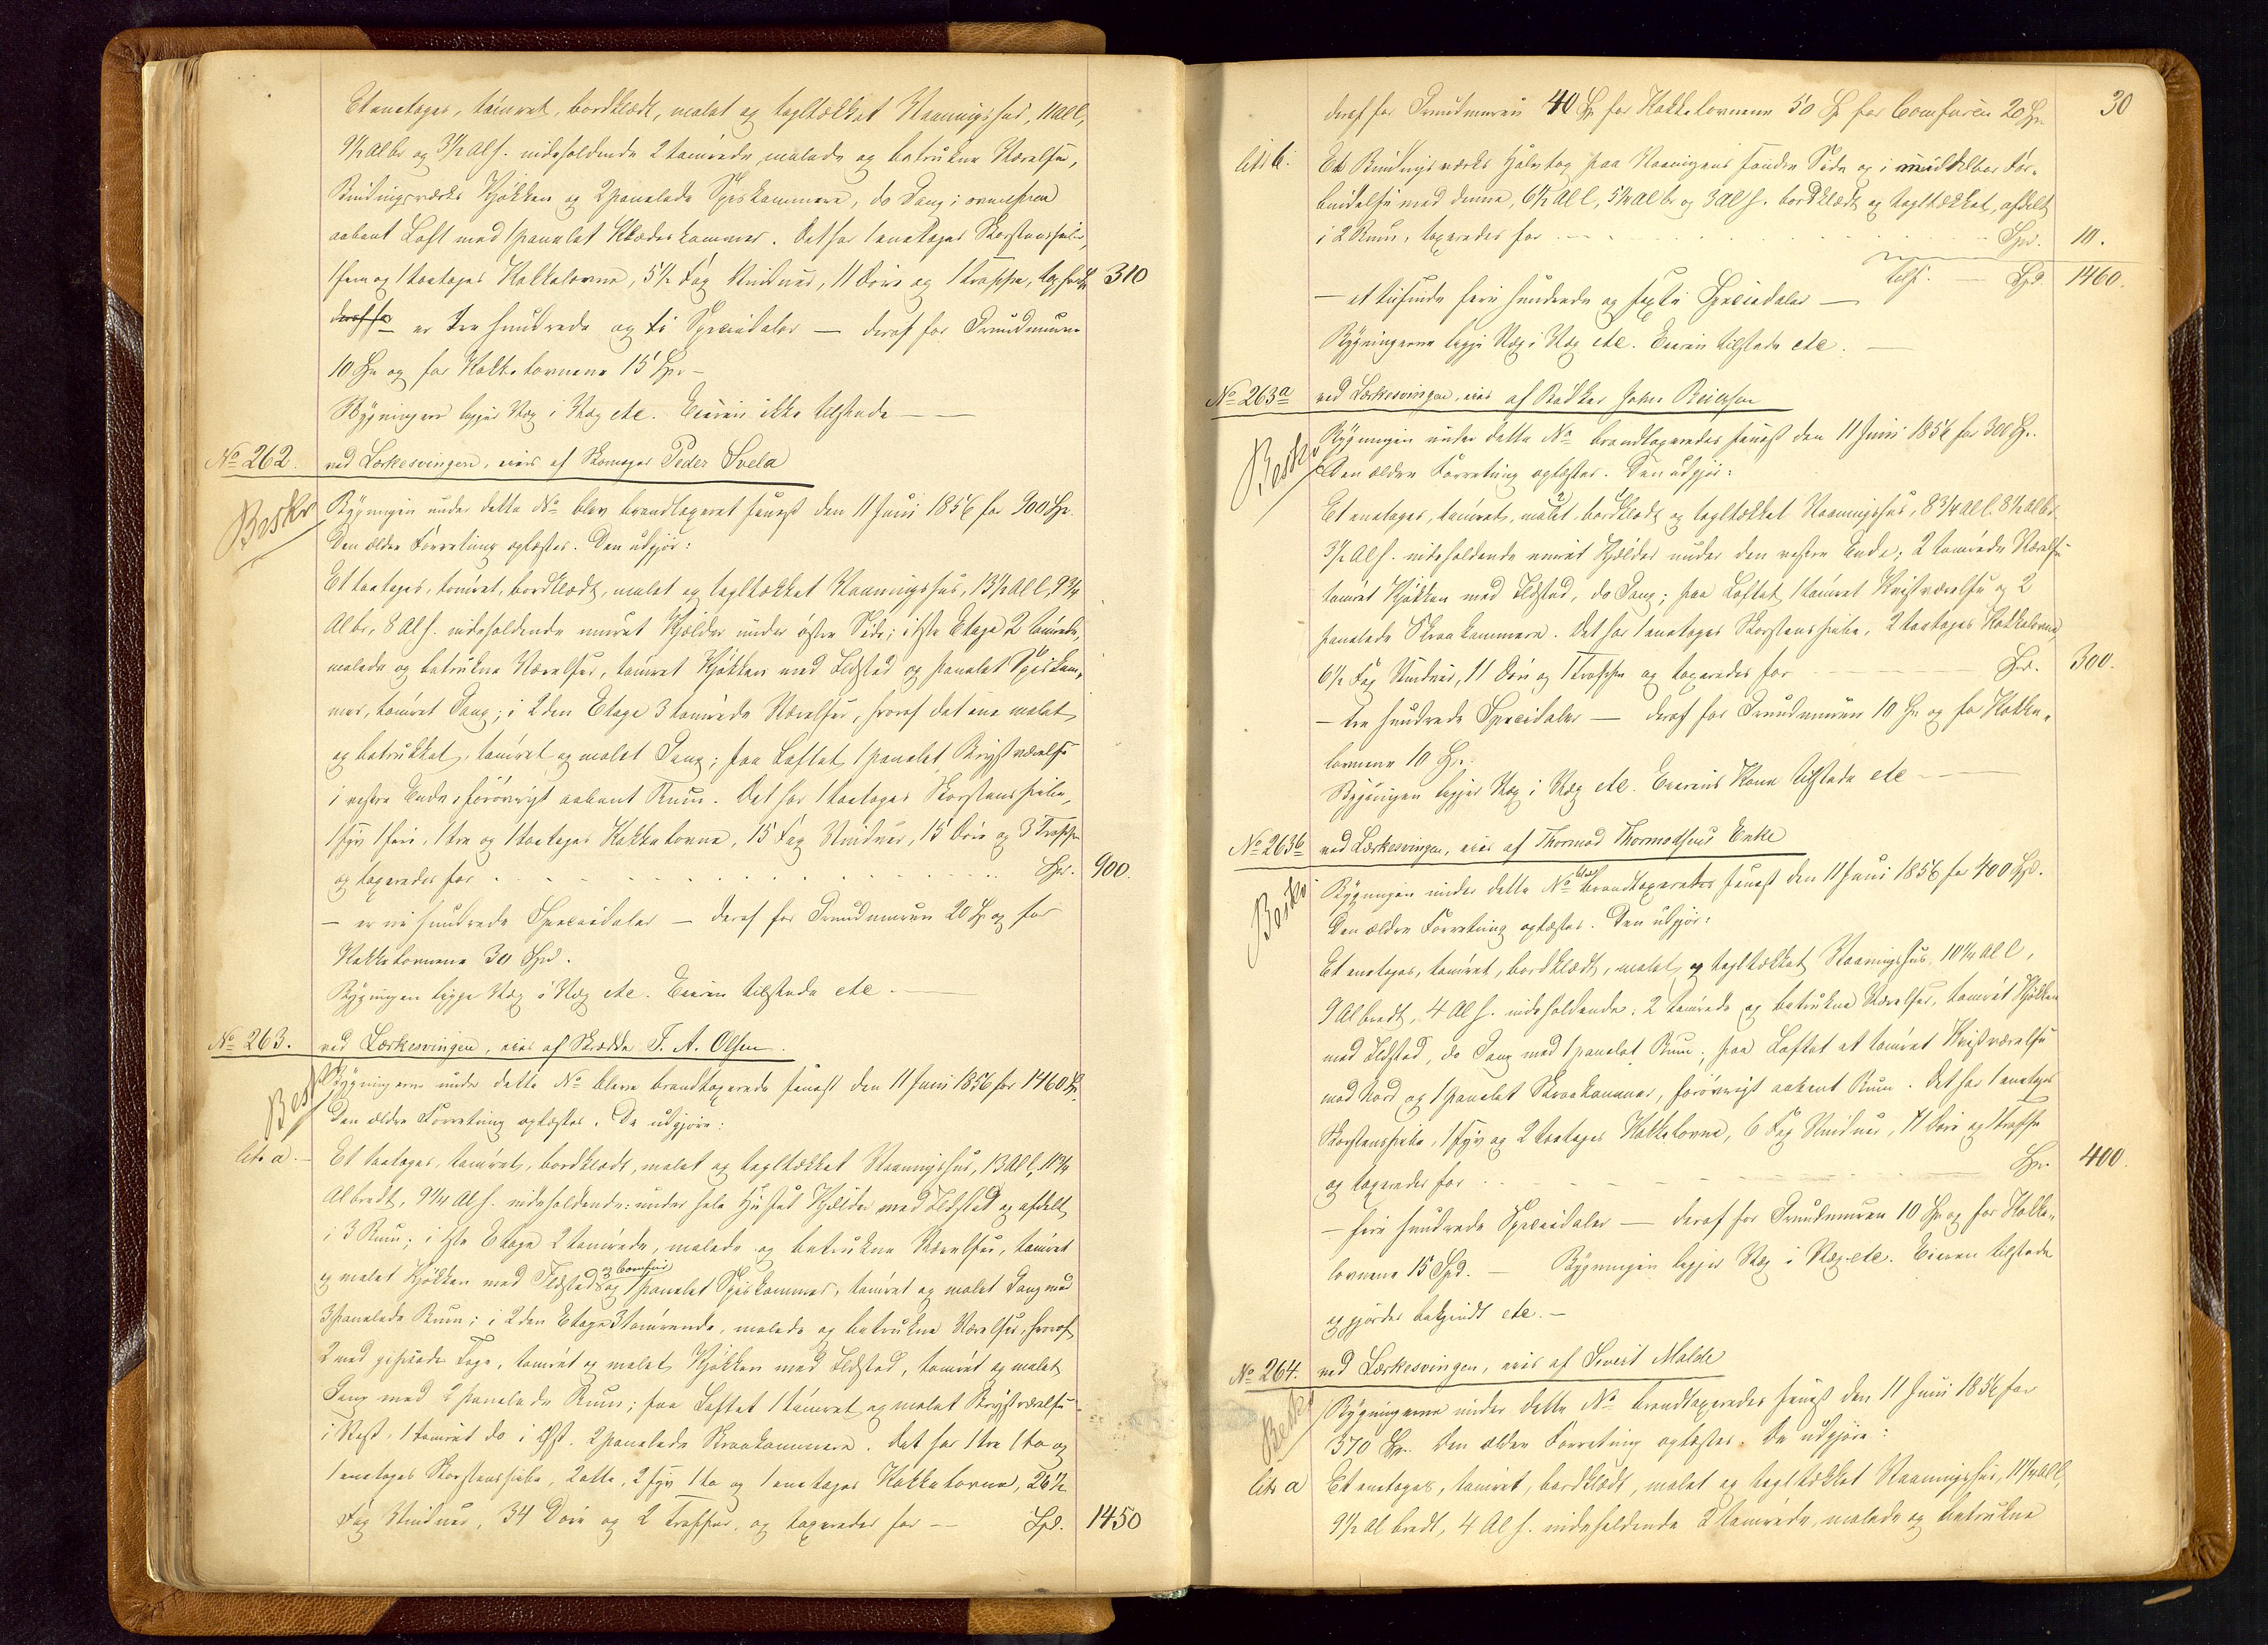 Et enetages, tømret, bordklædt, malet og tegltækket Vaaningshus, 11 Al l,
9½ Al br og 3½ Al h. indeholdende 2 tømrede malede og betrukne Værelser,
Bindingsværks Kjøkken og 2 panelede Spiskammere, do Gang; ovenpaa
aabent Loft med 1 panelet Klædeskammer. Det har 1 enetages Skorstenspibe,
1 fem og 1 toetages Kakkelovne, 5½ Fag Vinduer, 11 Døre og 1 Trappe, tax. for Spd 310
deraf for er Tre hundrede og ti Speciedaler — deraf for Grundmuren
10 Spd og for Kakkelovnene 15 Spd —
Bygningen ligger Væg i Væg etc. Eieren ikke tilstede —
No 262. ved Lærkesvingen, eies af Skomager Peder Svela
Beskr Bygningen under dette No blev brandtaxeret senest den 11 Juni 1856 for 900 Spd.
Den ældre Forretning oplæstes. Den udgjør:
Et toetages, tømret, bordklædt, malet og tegltækket Vaaningshus, 13½ Al l, 9¾
Al br, 8 Al h. indeholdende muret Kjælder under østre Side; i 1ste Etage 2 tømrede,
malede og betrukne Værelser, tømret Kjøkken med Ildsted og panelet Spiskam-
mer, tømret Gang; i 2den Etage 3 tømrede Værelser, hvoraf det ene malet
og betrukket, tømret og malet Gang; paa Loftet 1 panelet Kvistværelse
i vestre Ende, forøvrigt aabent Rum. Det har 1 toetages Skorstenspibe,
1 syv 1 fire, 1 tre og 1 toetages Kakkelovne, 15 Fag Vinduer, 15 Døre og 3 Trapper
og taxeredes for Spd. 900.
— er ni hundrede Speciedaler — deraf for Grundmuren 20 Spd og for
Kakkelovnene 30 Spd.
Bygningen ligger Væg i Væg etc. Eieren tilstede etc. —
No 263. ved Lærkesvingen, eies af Skrædder T. A. Olsen.
Besk Bygningerne under dette No bleve brandtaxerede senest den 11 Juni 1856 for 1460 Spd.
Den ældre Forretning oplæstes. De udgjøre:
litr a. — Et toetages, tømret, bordklædt, malet og tegltækket Vaaningshus, 13 Al l, 11¾
Al bredt, 9¼ Al h. indeholdende: under hele Huset Kjælder med Ildsted og afdelt
i 3 Rum; i 1ste Etage 2 tømrede, malede og betrukne Værelser, tømret
og malet Kjøkken med Ildsted og Comfur og 1 panelet Spiskammer, tømret og malet Gang med
3 panelede Rum; i 2den Etage 3 tømrende, malede og betrukne Værelser, hvoraf
2 med gipsede Tage, tømret og malet Kjøkken med Ildsted, tømret og malet
Gang med 2 panelede Rum; paa Loftet 1 tømret og malet Kvistværelse
i Vest, 1 tømret do i Øst. 2 panelede Skraakammere. Det har 1 tre 1 to og
1 enetages Skorstenspibe, 2 otte, 2 syv 1 to og 1 enetages Kakkelovne, 26½
Fag Vinduer, 34 Døre og 2 Trapper, og taxeredes for — Spd. 1450
30
deraf for Grundmuren 40 Spd for Kakkelovnene 50 Spd for Comfuren 20 Spd.
litr b. Et Bindingsværks Halvtag paa Vaaningens søndre Side og i umiddelbar For-
bindelse med denne, 6½ Al l, 5½ Al br og 3 Al h. bordklædt og tegltækket, afdelt
i 2 Rum, taxeredes for Spd. 10.
tils. — Spd 1460.
— et tusinde fire hundrede og sexti Speciedaler —
Bygningerne ligge Væg i Væg etc. Eieren tilstede etc. —
No 263a ved Lærkesvingen, eies af Bødker Johan Reiersen
Beskr Bygningen under dette No brandtaxeredes senest den 11 Juni 1856 for 300 Spd.
Den ældre Forretning oplæstes. Den udgjør:
Et enetages, tømret, malet, bordklædt og tegltækket Vaaningshus, 8¾ Al l. 8½ Al br.
3½ Al h. indeholdende muret Kjælder under den vestre Ende; 2 tømrede Værelser
tømret Kjøkken med Ildsted, do Gang; paa Loftet 1 tømret Kvistværelse og 2
panelede Skraakammere. Det har 1 enetages Skorstenspibe, 2 toetages Kakkelovne,
6½ Fag Vinduer, 11 Døre og 1 Trappe og taxeredes for Spd. 300.
— tre hundrede Speciedaler — deraf for Grundmuren 10 Spd og for Kakke-
lovnene 10 Spd.
Bygningen ligger Væg i Væg etc. Eierens Kone tilstede etc —
No 263b ved Lærkesvingen, eies af Thormod Thormodsens Enke
Beskr. Bygningen under dette No blev brandtaxeret senest den 11 Juni 1856 for 400 Spd.
Den ældre Forretning oplæstes. Den udgjør:
Et enetages, tømret, bordklædt, malet og tegltækket Vaaningshus, 10¼ Al l,
9 Al bredt, 4 Al h. indeholdende: 2 tømrede og betrukne Værelser, tømret Kjøkken
med Ildsted, do Gang med 1 panelet Rum; paa Loftet et tømret Kvistværelse
mod Nord og 1 panelet Skraakammer, forøvrigt aabent Rum. Det har 1 enetages
Skorstenspibe, 1 syv og 2 toetages Kakkelovne, 6 Fag Vinduer, 11 Døre og 1 Trappe
og taxeredes for Spd. 400.
— fire hundrede Speciedaler — deraf for Grundmuren 10 Spd og for Kakke-
lovnene 15 Spd. — Bygningen ligger Væg i Væg etc. Eieren tilstede
og gjordes bekjendt etc. —
No 264. ved Lærkesvingen, eies af Sivert Malde
Beskr Bygningerne under dette No brandtaxeredes senest den 11 Juni 1856 for
370 Spd. Den ældre Forretning oplæstes. De udgjøre:
litr a Et enetages, tømret, bordklædt, malet og tegltækket Vaaningshus, 11¼ Al l,
9½ Al bredt, 4 Al h. indeholdende 2 tømrede, malede og betrukne